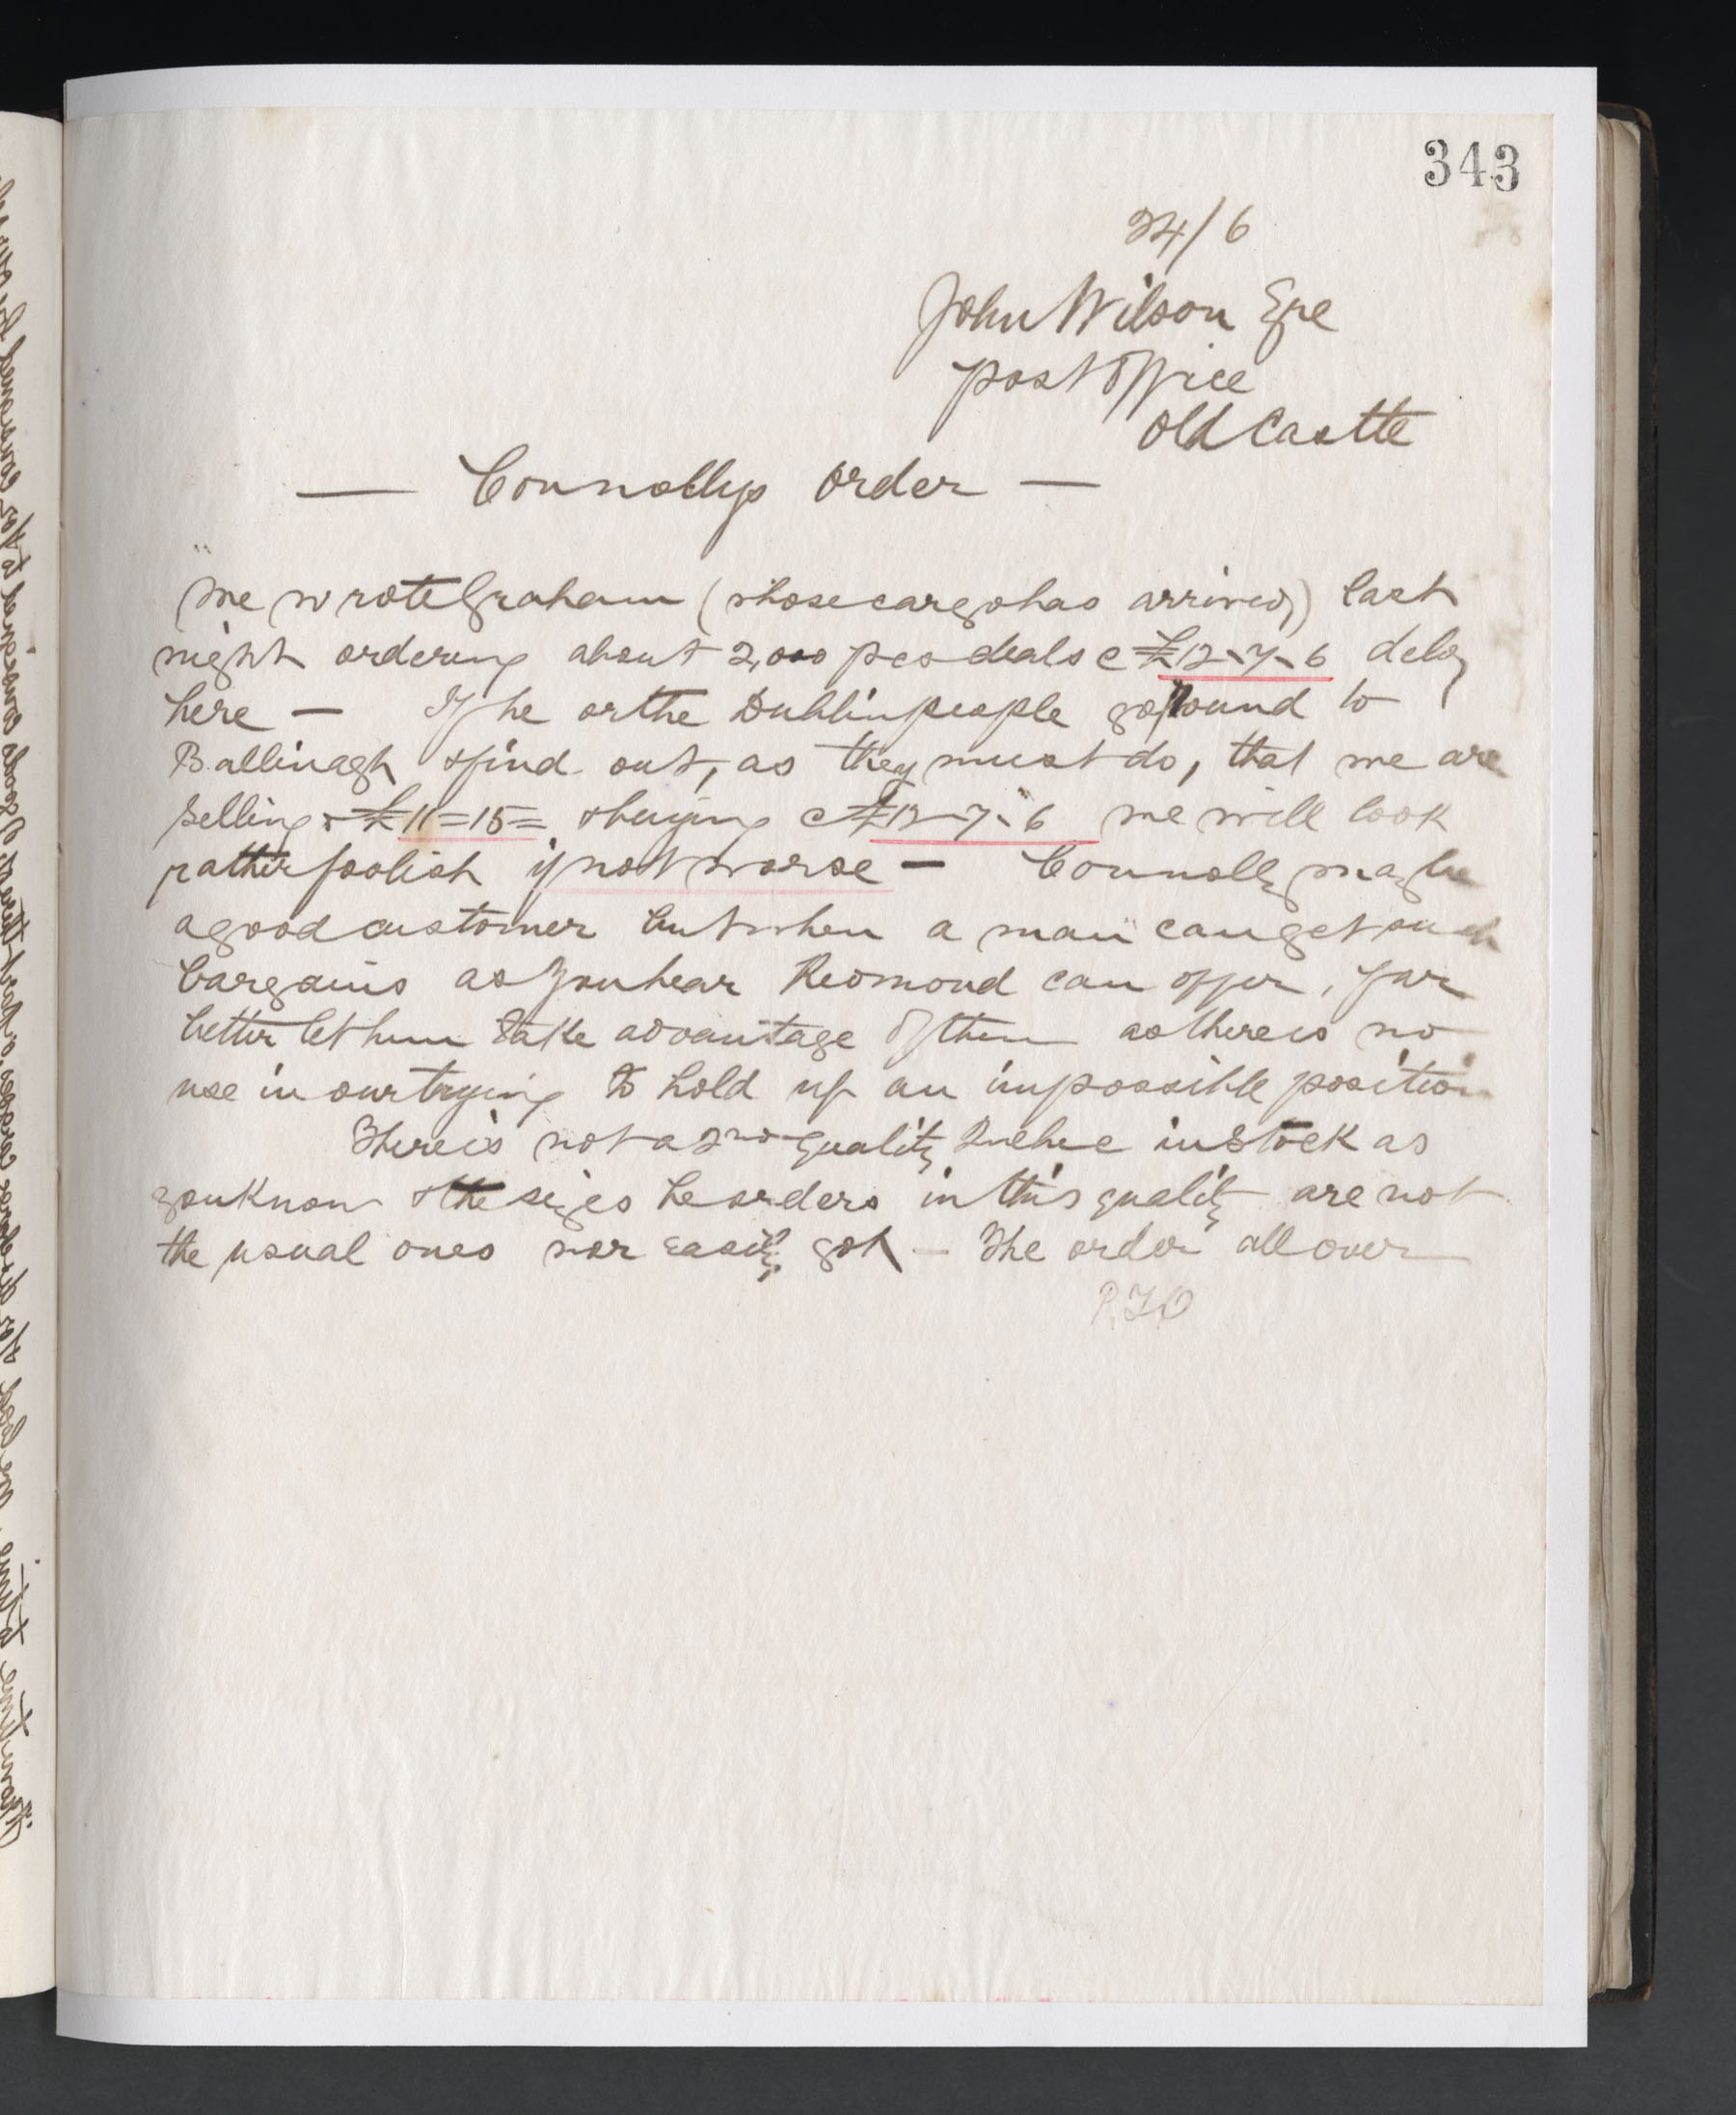 343
24/6
John Wilson Esqe
post office
Old Castle
— Connollys order —
We wrote Graham (whose cargo has arrived) last
night ordering about 2,000 pcs deals @ £12-7-6 dely
here — If he or the Dublin people go round to
Ballinagh & find out, as they must do, that we are
selling @ £11=15= & buying @ £12-7-6 we will look
rather foolish if not worse — Connolly may be
a good customer but when a man can get such
bargains as you hear Redmond can offer, far
better let him take advantage of them as there is no
use in our trying to hold up an impossible position
There is not a 2nd quality Quebec in stock as
you know & the sizes he orders in this quality are not
the usual ones nor easily got — The order all over
P.T.O